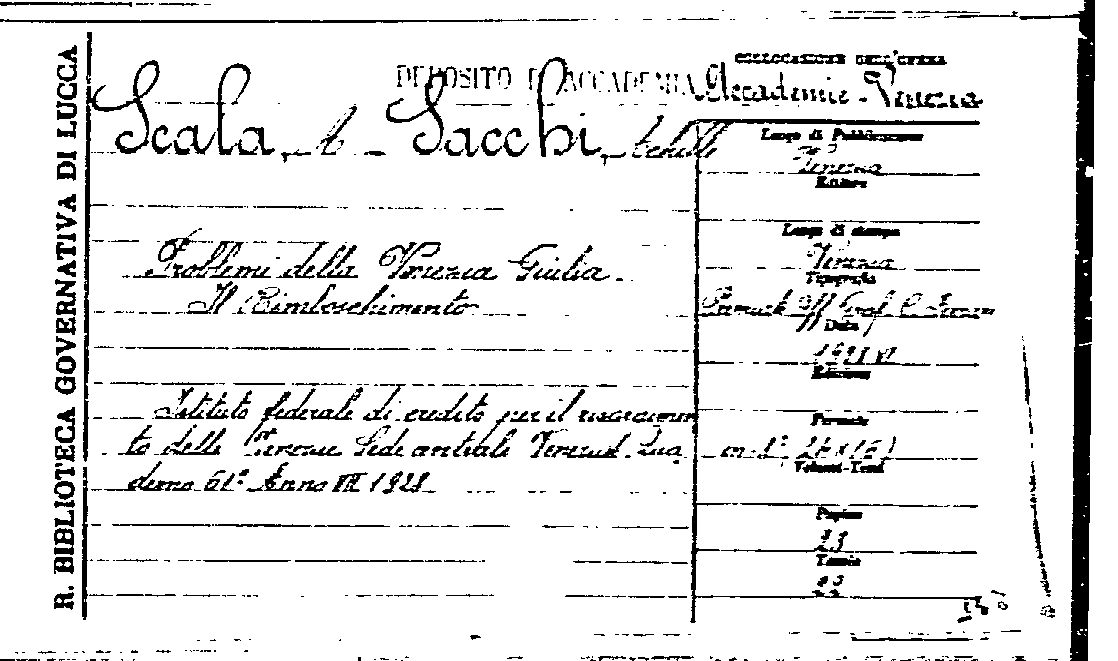 R. BIBLIOTECA GOVERNATIVA DI LUCCA
DEPOSITO ACCADEMIA
COLLOCAZIONE DELL'OPERA
Accademie - Venezia
Scala, A - Sacchi, Achille
Luogo di Pubblicazione
Venezia
Editore
Luogo di stampa
Venezia
Tipografia
Graf. C.
Data
1928 VI
Edizione
Problemi della Venezia Giulia.
Il Rimboschimento
Istituto federale di credito per il risorgimen
to delle Venezie Sede centrale Venezia. Qua
derno 61º Anno VII 1928
Formato
in 8º
Volumi-Tomi
Pagine
23
Tavole